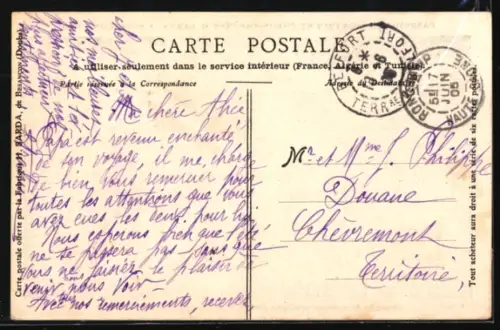 CARTE POSTALE
A utiliser seulement dans le service intérieur (France, Algérie et Tunisie)
Partie réservée à la Correspondance
Adresse du Destinataire
Ma chère Alice
Papa est revenu enchanté
de son voyage, il me charge
de bien vous remercier pour
toutes les attentions que vous
avez eues les deux pour lui
Nous espérons bien que l'été
ne se passera pas sans que
vous ne fassiez le plaisir de
venir nous voir
Avec nos remerciements, recevez
cher
nos meilleures
Mr et Mme J. Philippe
Douane
Chèvremont
Territoire
BELFORT
TERR
RONCHAMP
17
JUIN
05
HAUTE SAONE
Carte postale offerte par la Fabrique H. SARDA, de Besançon (Doubs).
Tout acheteur aura droit à une série de six cartes